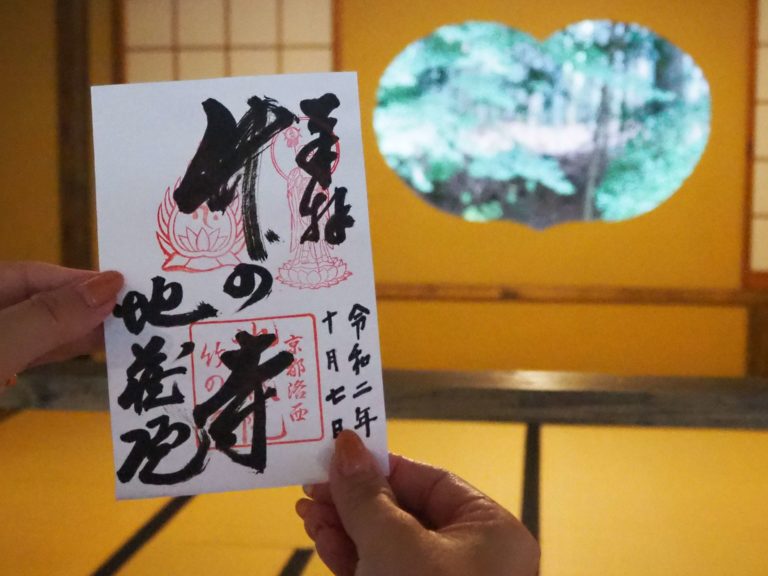 奉拝
令和二年
十月七日
竹の寺
地蔵院
京都洛西
竹の